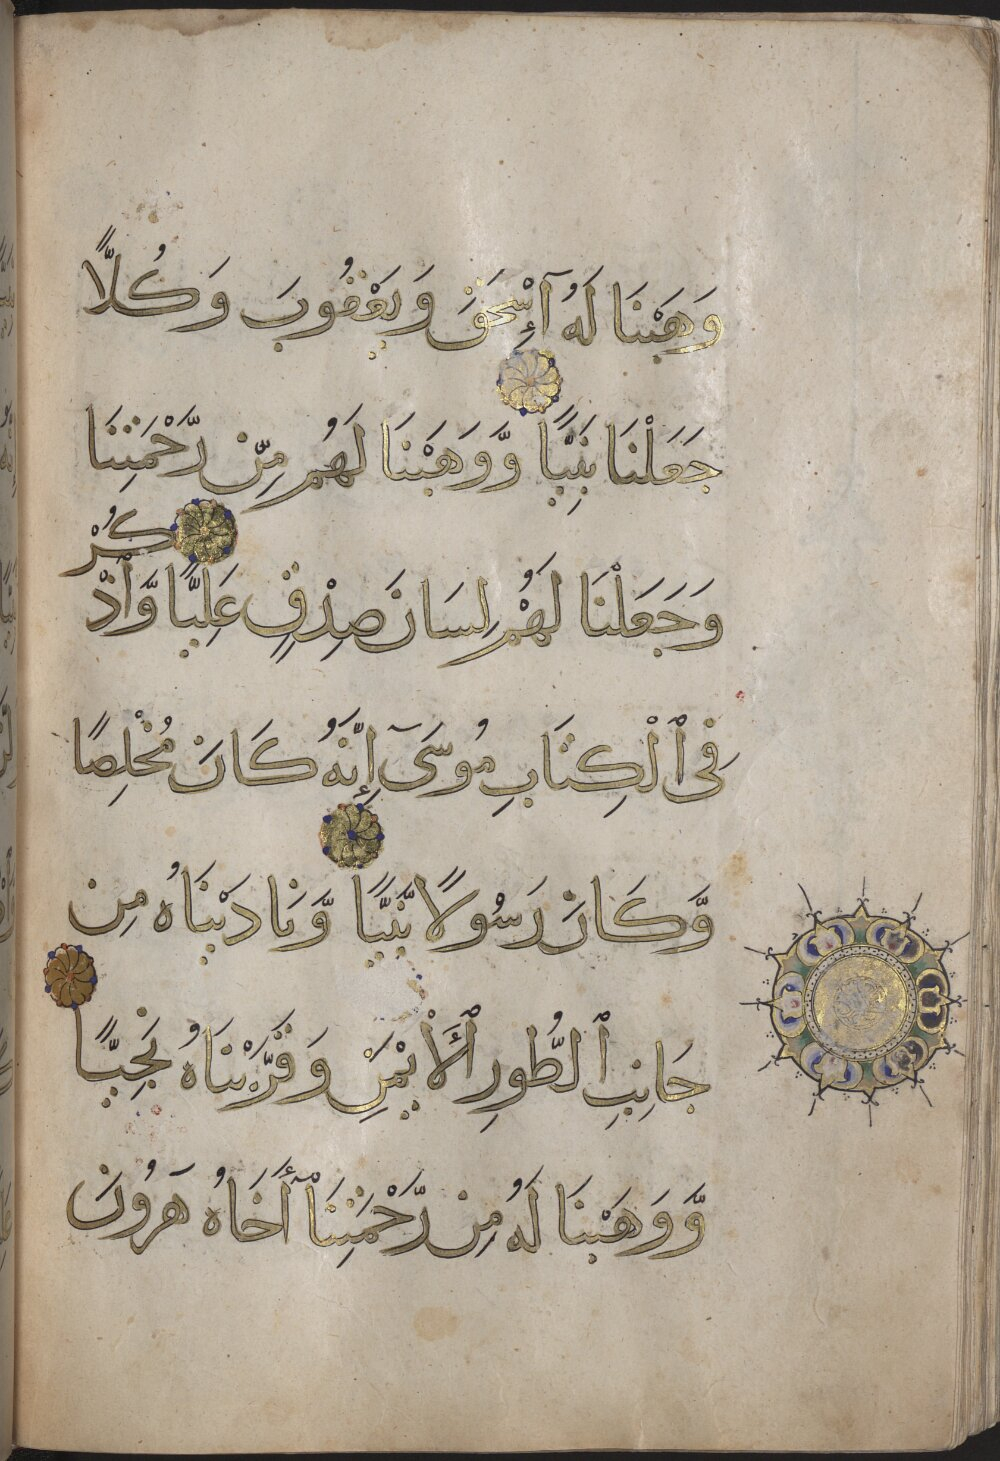 وَهَبْنَا لَهُ إِسْحَقَ وَيَعْقُوبَ وَكُلًّا
جَعَلْنَا نَبِيًّا وَّوَهَبْنَا لَهُم مِّن رَّحْمَتِنَا
وَجَعَلْنَا لَهُمْ لِسَانَ صِدْقٍ عَلِيًّا وَّاذْكُرْ
فِى ٱلْكِتَابِ مُوسَىٓ إِنَّهُ كَانَ مُخْلِصًا
وَّكَانَ رَسُولًا نَّبِيًّا وَّنَادَيْنَاهُ مِن
جَانِبِ ٱلطُّورِ ٱلْأَيْمَنِ وَقَرَّبْنَاهُ نَجِيًّا
وَّوَهَبْنَا لَهُ مِن رَّحْمَتِنَآ أَخَاهُ هَرُونَ